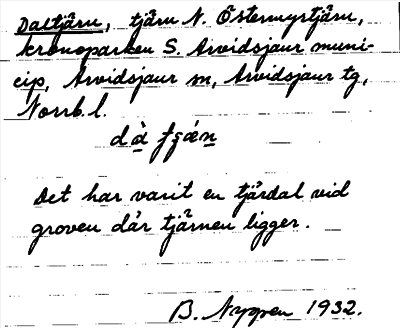 Daltjärn, tjärn N. Östermyrtjärn,
kronoparken S. Arvidsjaur muni-
cip, Arvidsjaur sn, Arvidsjaur tg,
Norrb. l.
dà fʂǽn
Det har varit en tjärdal vid
groven där tjärnen ligger.
B. Nygren 1932.